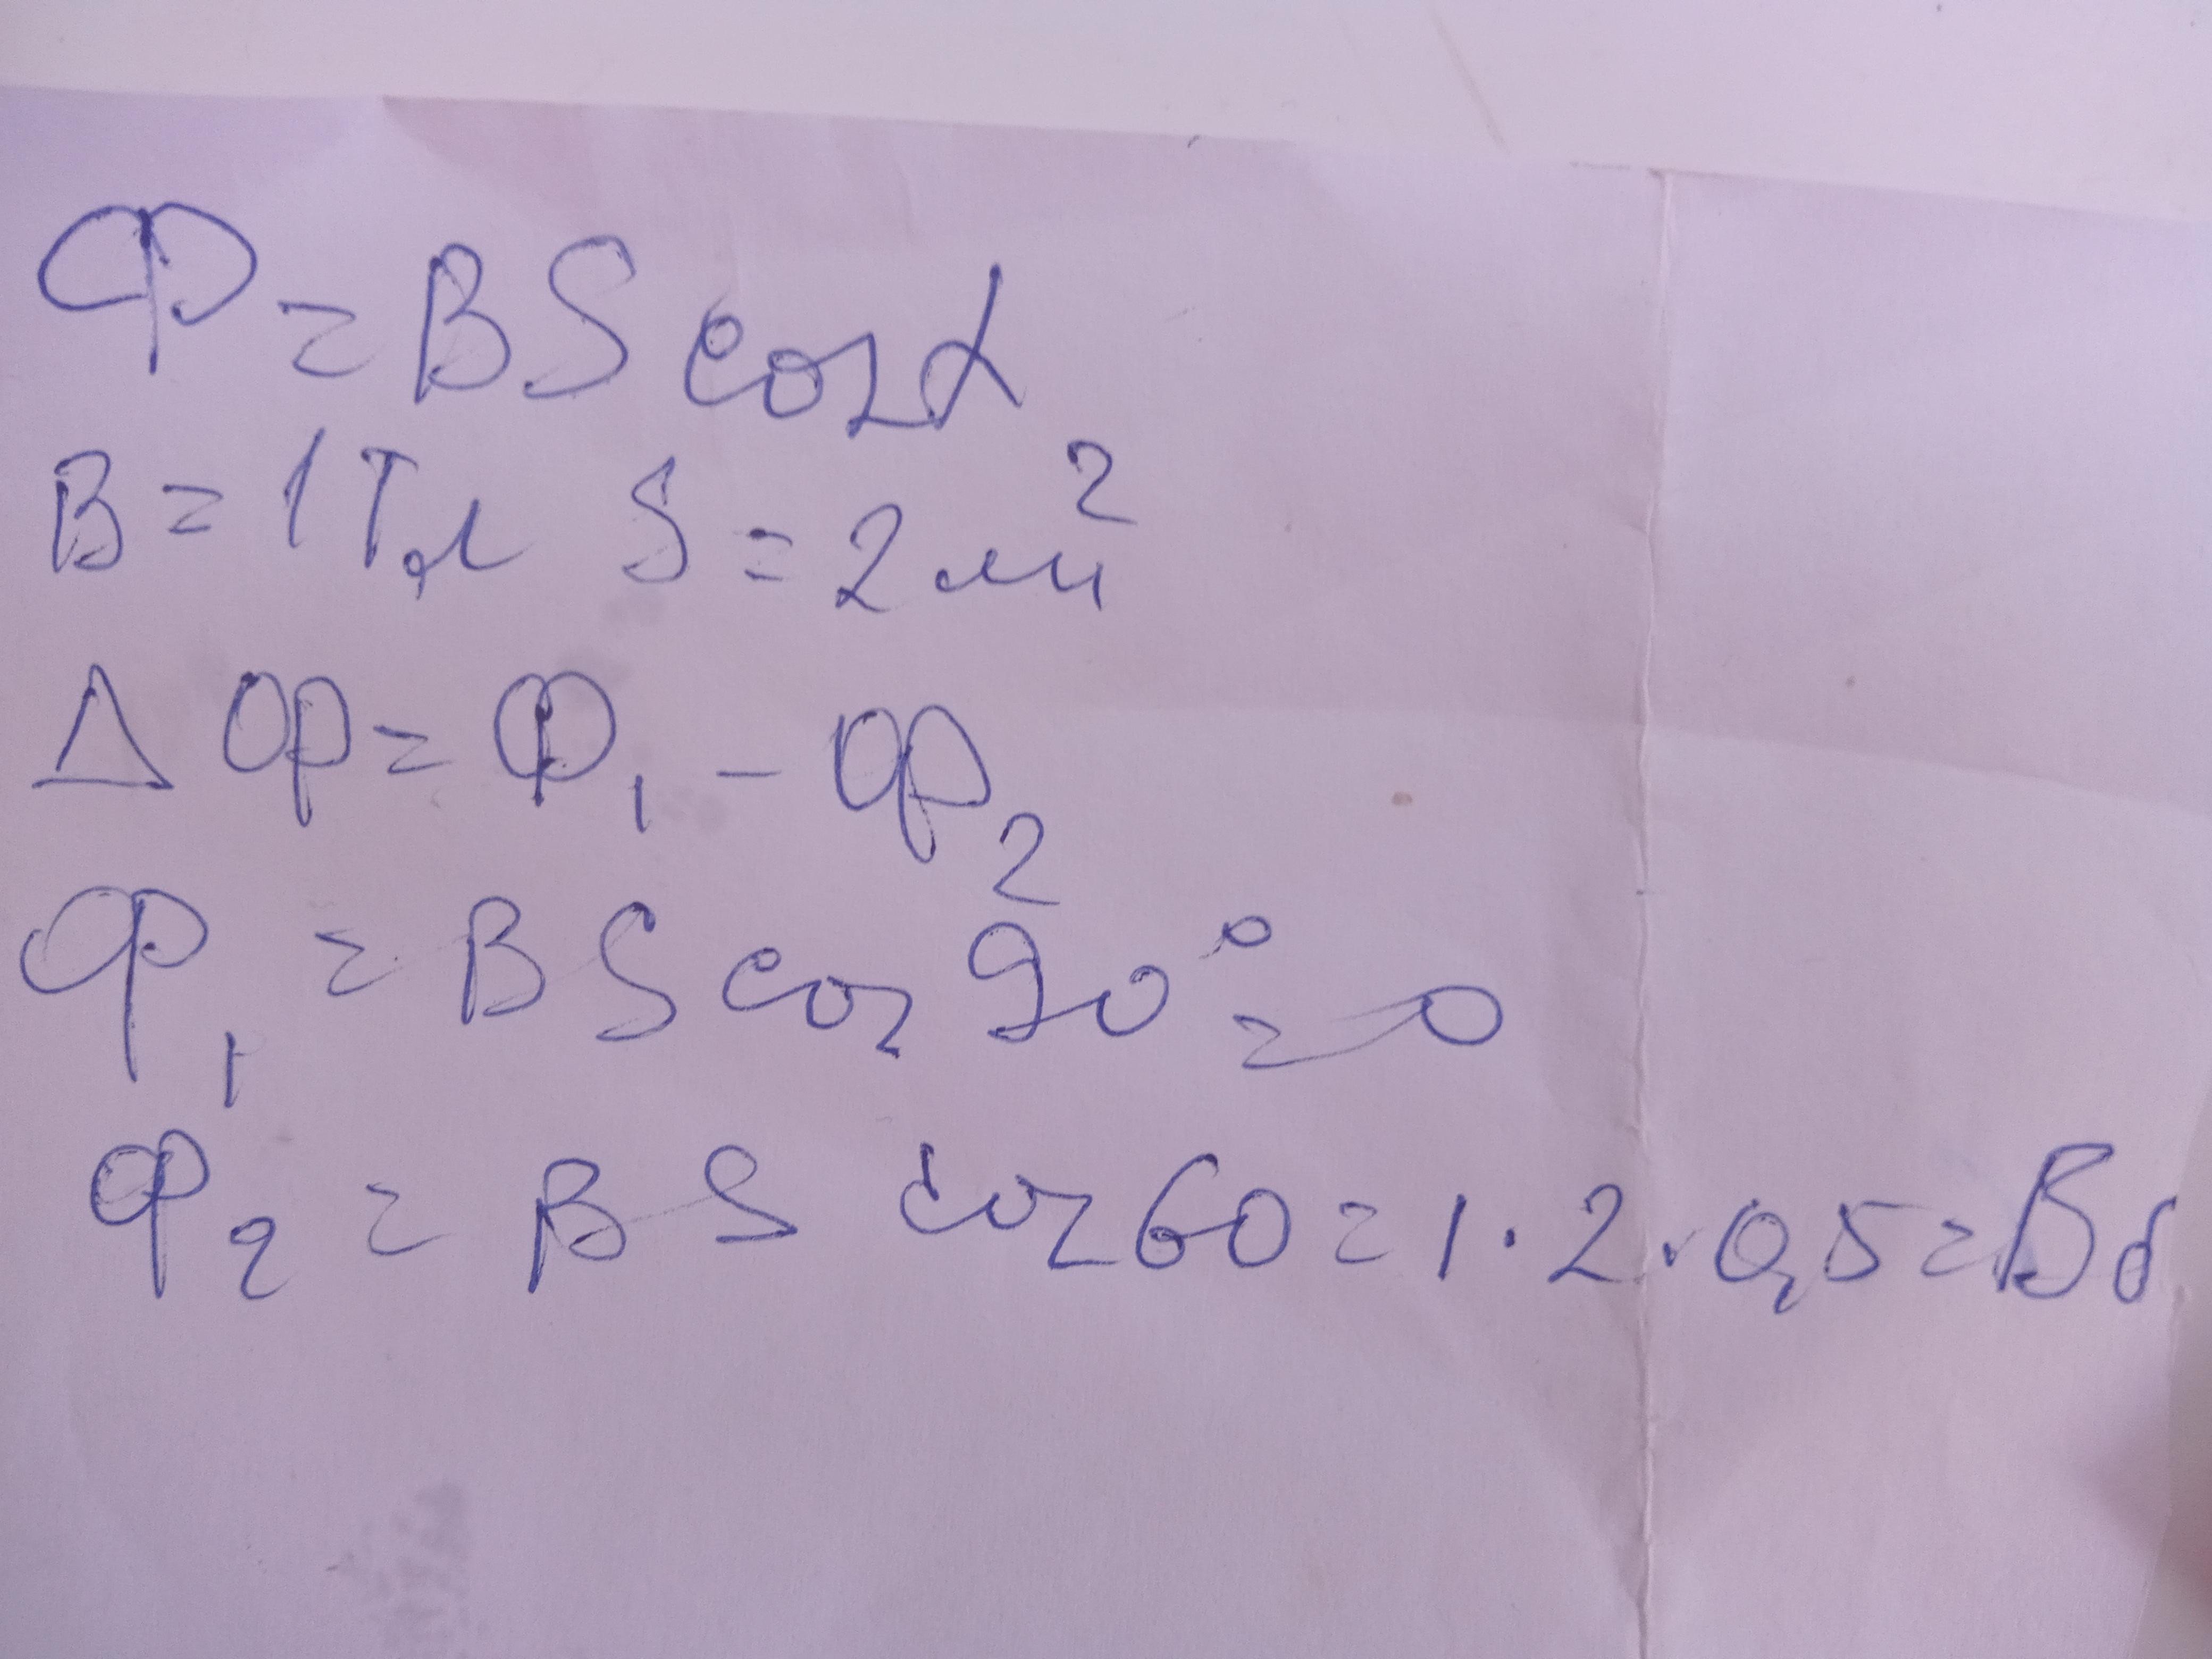 Ф = BS cosα
B = 1 Тл S = 2 м²
Δ Ф = Ф₁ - Ф₂
Ф₁ = BS cos 90° = 0
Ф₂ = BS cos 60 = 1 · 2 · 0,5 = Вб